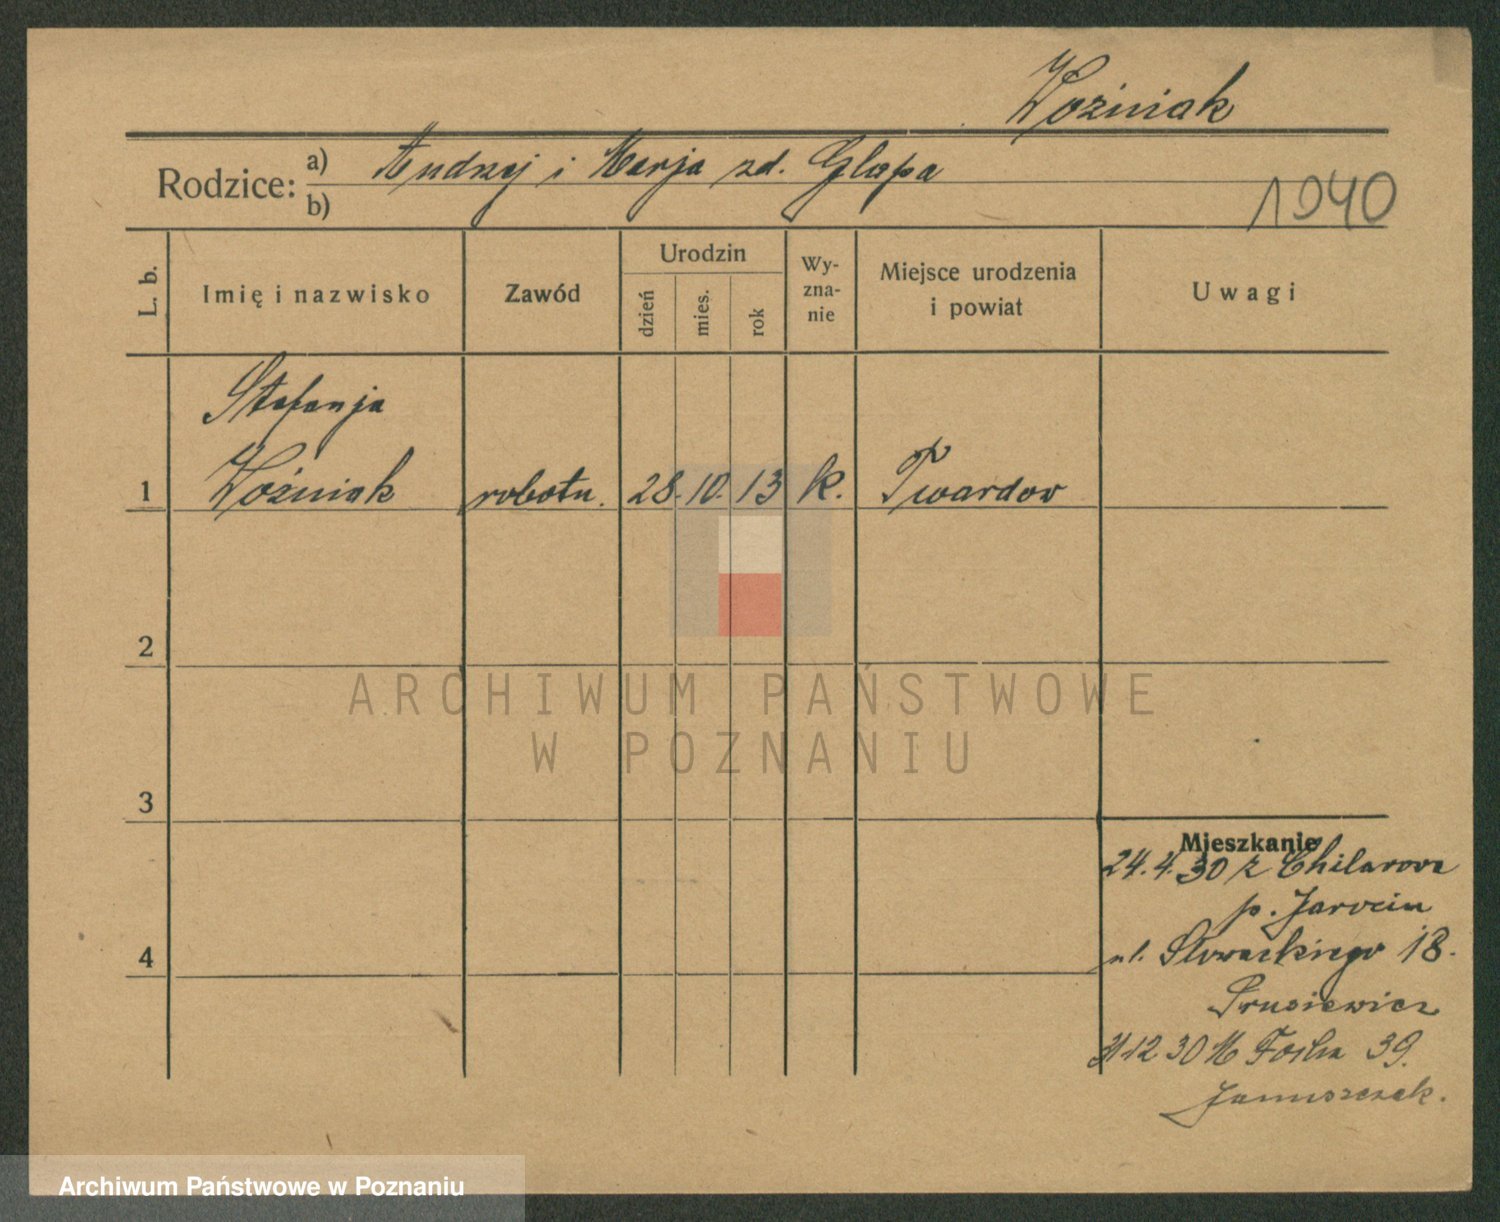 Woźniak
Rodzice: a) Andrzej i Marja zd. Glapa
b)
1940
L. b.
Imię i nazwisko
Zawód
Urodzin
dzień
mies.
rok
Wy-
zna-
nie
Miejsce urodzenia
i powiat
Uwagi
Stefanja
1 Woźniak robotn. 28. 10. 13 k. Twardow
2
ARCHIWUM PAŃSTWOWE
W POZNANIU
3
4
Mieszkanie
24.4.30 z Chilarova
p. Jarocin
ul. Słowackiego 18.
Prusiewicz
12 30 M Focha 39.
Januszczak.
Archiwum Państwowe w Poznaniu